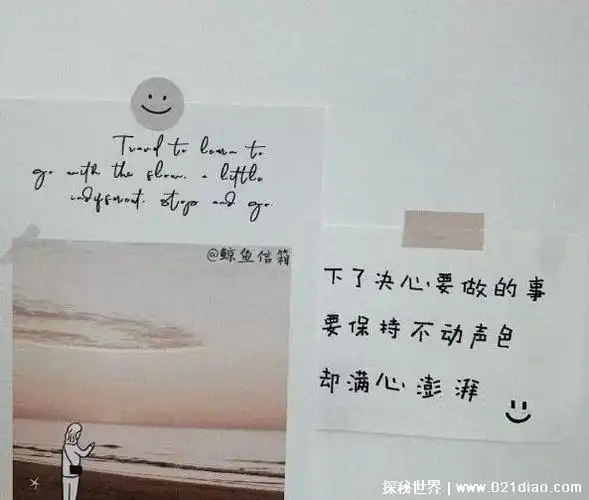 Travel to learn to
go with the slow. a little
indifferent. stop and go.
@鲸鱼信箱
下了决心要做的事
要保持不动声色
却满心澎湃
探秘世界 | www.021diao.com